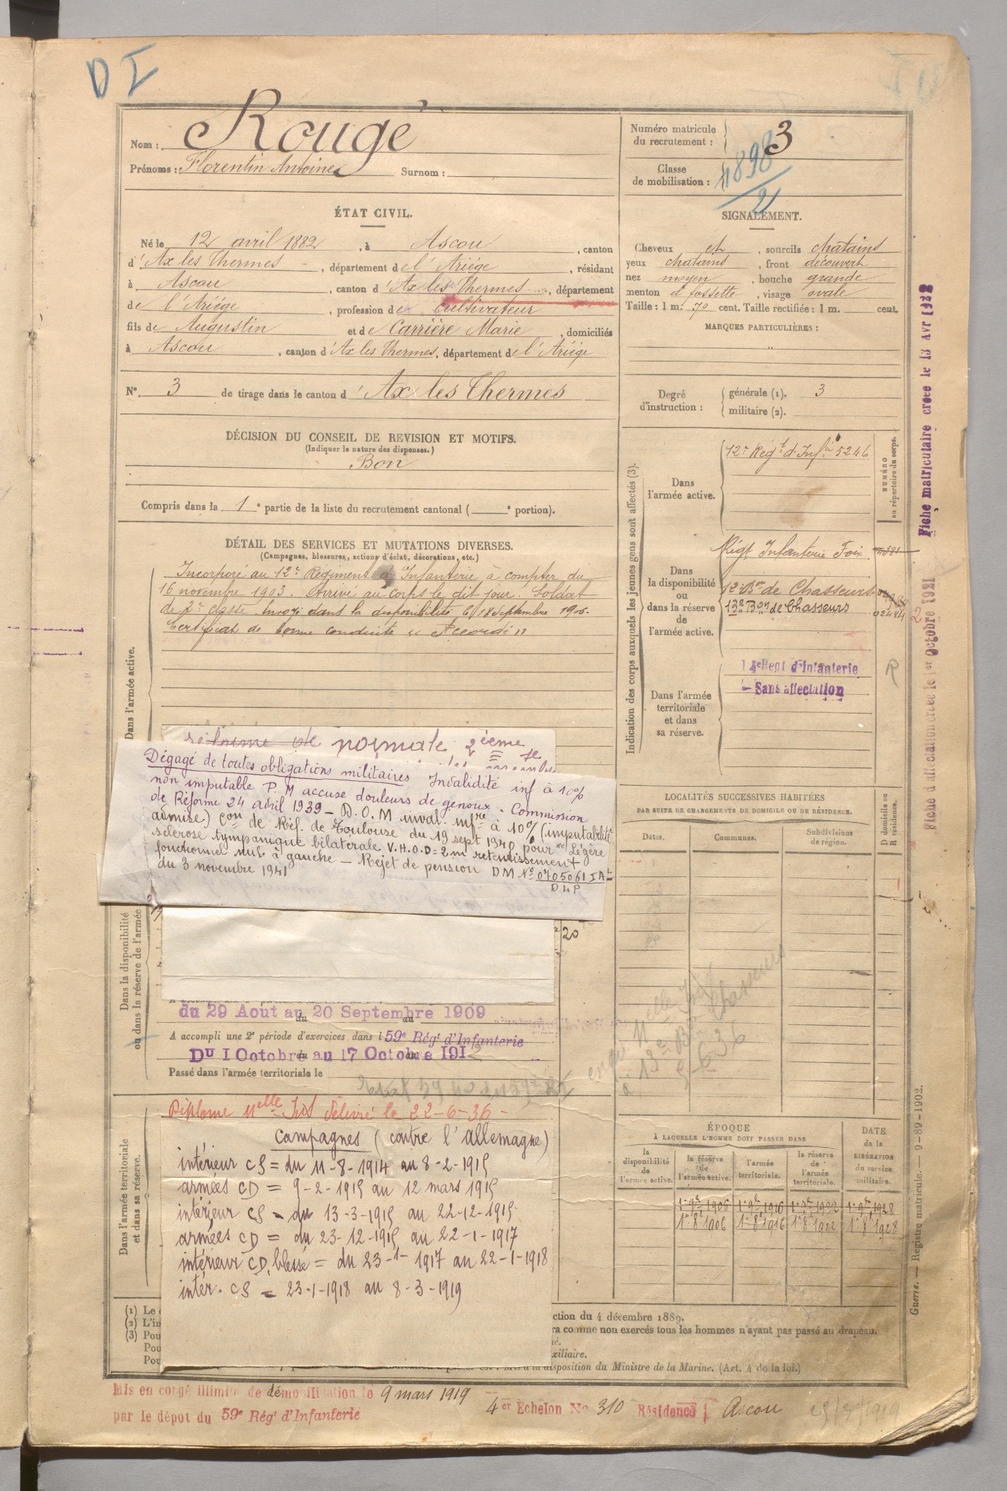 D I
Nom : Rougé
Prénoms : Florentin Antoine Surnom :
Numéro matricule du recrutement : 3
Classe de mobilisation : 1898/2
ÉTAT CIVIL.
Né le 12 avril 1882, à Ascou, canton
d'Ax les Thermes, département de l'Ariège, résidant
à Ascou, canton d'Ax les Thermes, département
de l'Ariège, profession de Cultivateur
fils de Augustin et de Carrière Marie, domiciliés
à Ascou, canton d'Ax les Thermes, département de l'Ariège
SIGNALEMENT.
Cheveux et, sourcils chatains
yeux chatains, front découvert
nez moyen, bouche grande
menton à fossette, visage ovale
Taille : 1 m. 70 cent. Taille rectifiée : 1 m. cent.
MARQUES PARTICULIÈRES :
N° 3 de tirage dans le canton d'Ax les Thermes
Degré d'instruction : générale (1). 3
militaire (2).
DÉCISION DU CONSEIL DE REVISION ET MOTIFS.
(Indiquer la nature des dispenses.)
Bon
Compris dans la 1e partie de la liste du recrutement cantonal ( e portion).
DÉTAIL DES SERVICES ET MUTATIONS DIVERSES.
(Campagnes, blessures, actions d'éclat, décorations, etc.)
Dans l'armée active.
Incorporé au 12e Régiment d'Infanterie à compter du
16 novembre 1903. Arrivé au corps le dit jour. Soldat
de 2e classe. Envoyé dans la disponibilité le 18 septembre 1905.
Certificat de bonne conduite " Accordé "
Indication des corps auxquels les jeunes gens sont affectés (3).
Dans l'armée active.
12e Régt d'Infie 5246
NUMÉRO au répertoire du corps.
Dans la disponibilité ou dans la réserve de l'armée active.
Régt Infanterie Foix
12e Bon de Chasseurs
13e Bon de Chasseurs
Dans l'armée territoriale et dans sa réserve.
Regt d'Infanterie
Sans affectation
R
Fiche matriculaire créée le 13 Avr 1932
Fiche d'affectation créée le 1er Octobre 1921
LOCALITÉS SUCCESSIVES HABITÉES
PAR SUITE DE CHANGEMENTS DE DOMICILE OU DE RÉSIDENCE.
Dates. Communes. Subdivisions de région. D domicile ou R résidence.
de normale 2ième
Dégagé de toutes obligations militaires Invalidité inf à 10%
non imputable P. M accuse douleurs de genoux. Commission
de Réforme 24 abril 1939 - D.O.M inval. infre à 10% (imputabilité
admise) Con de Réf. de Toulouse du 19 sept 1940 pour Légère
sclérose tympanique bilatérale V.H.O.D = 2m retentissement
fonctionnel nul à gauche - Rejet de pension DM N° 0705061 IA
du 3 novembre 1941 DLP
Dans la disponibilité ou dans la réserve de l'armée
20
du 29 Aout au 20 Septembre 1909
A accompli une 2e période d'exercices dans l 59e Rég' d'Infanterie
Du 1 Octobre au 17 Octobre 191
Passé dans l'armée territoriale le
Dans l'armée territoriale et dans sa réserve.
Diplome Melle Délivré le 22-6-36 -
Campagnes (contre l'allemagne)
intérieur CS = du 11-8-1914 au 8-2-1915
armées CD = 9-2-1915 au 12 mars 1915
intérieur CS = du 13-3-1915 au 22-12-1915
armées CD = du 23-12-1915 au 22-1-1917
intérieur CD, blessé = du 23-1-1917 au 22-1-1918
intér. CS = 23-1-1918 au 8-3-1919
ÉPOQUE
À LAQUELLE L'HOMME DOIT PASSER DANS
la disponibilité de l'armée active.
la réserve de l'armée active.
l'armée territoriale.
la réserve de l'armée territoriale.
DATE de la LIBÉRATION du service militaire.
1.8.1906 1.8.1916 1.8.1922 1.8.1928
Guerre. — Registre matricule. — 9-89-1902.
(1) Le
(2) L'in
(3) Pou
Pou
Pou
ction du 4 décembre 1889.
ra comme non exercés tous les hommes n'ayant pas passé au drapeau.
xiliaire.
disposition du Ministre de la Marine. (Art. 4 de la loi.)
Mis en congé illimité de démobilisation le 9 mars 1919
par le dépot du 59e Rég' d'Infanterie
4er Echelon No 310 Résidence Ascou